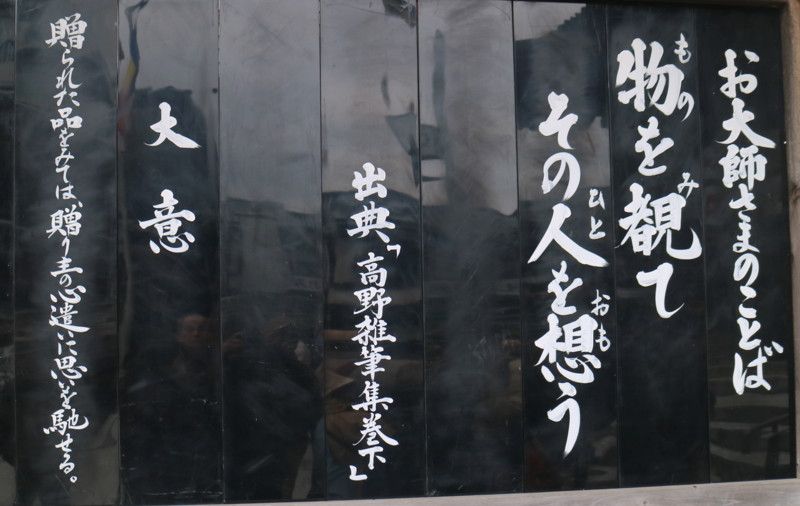 お大師さまのことば
物を観て
その人を想う
出典「高野雑筆集巻下」
大意
贈られた品をみては、贈り主の心遣いに思いを馳せる。